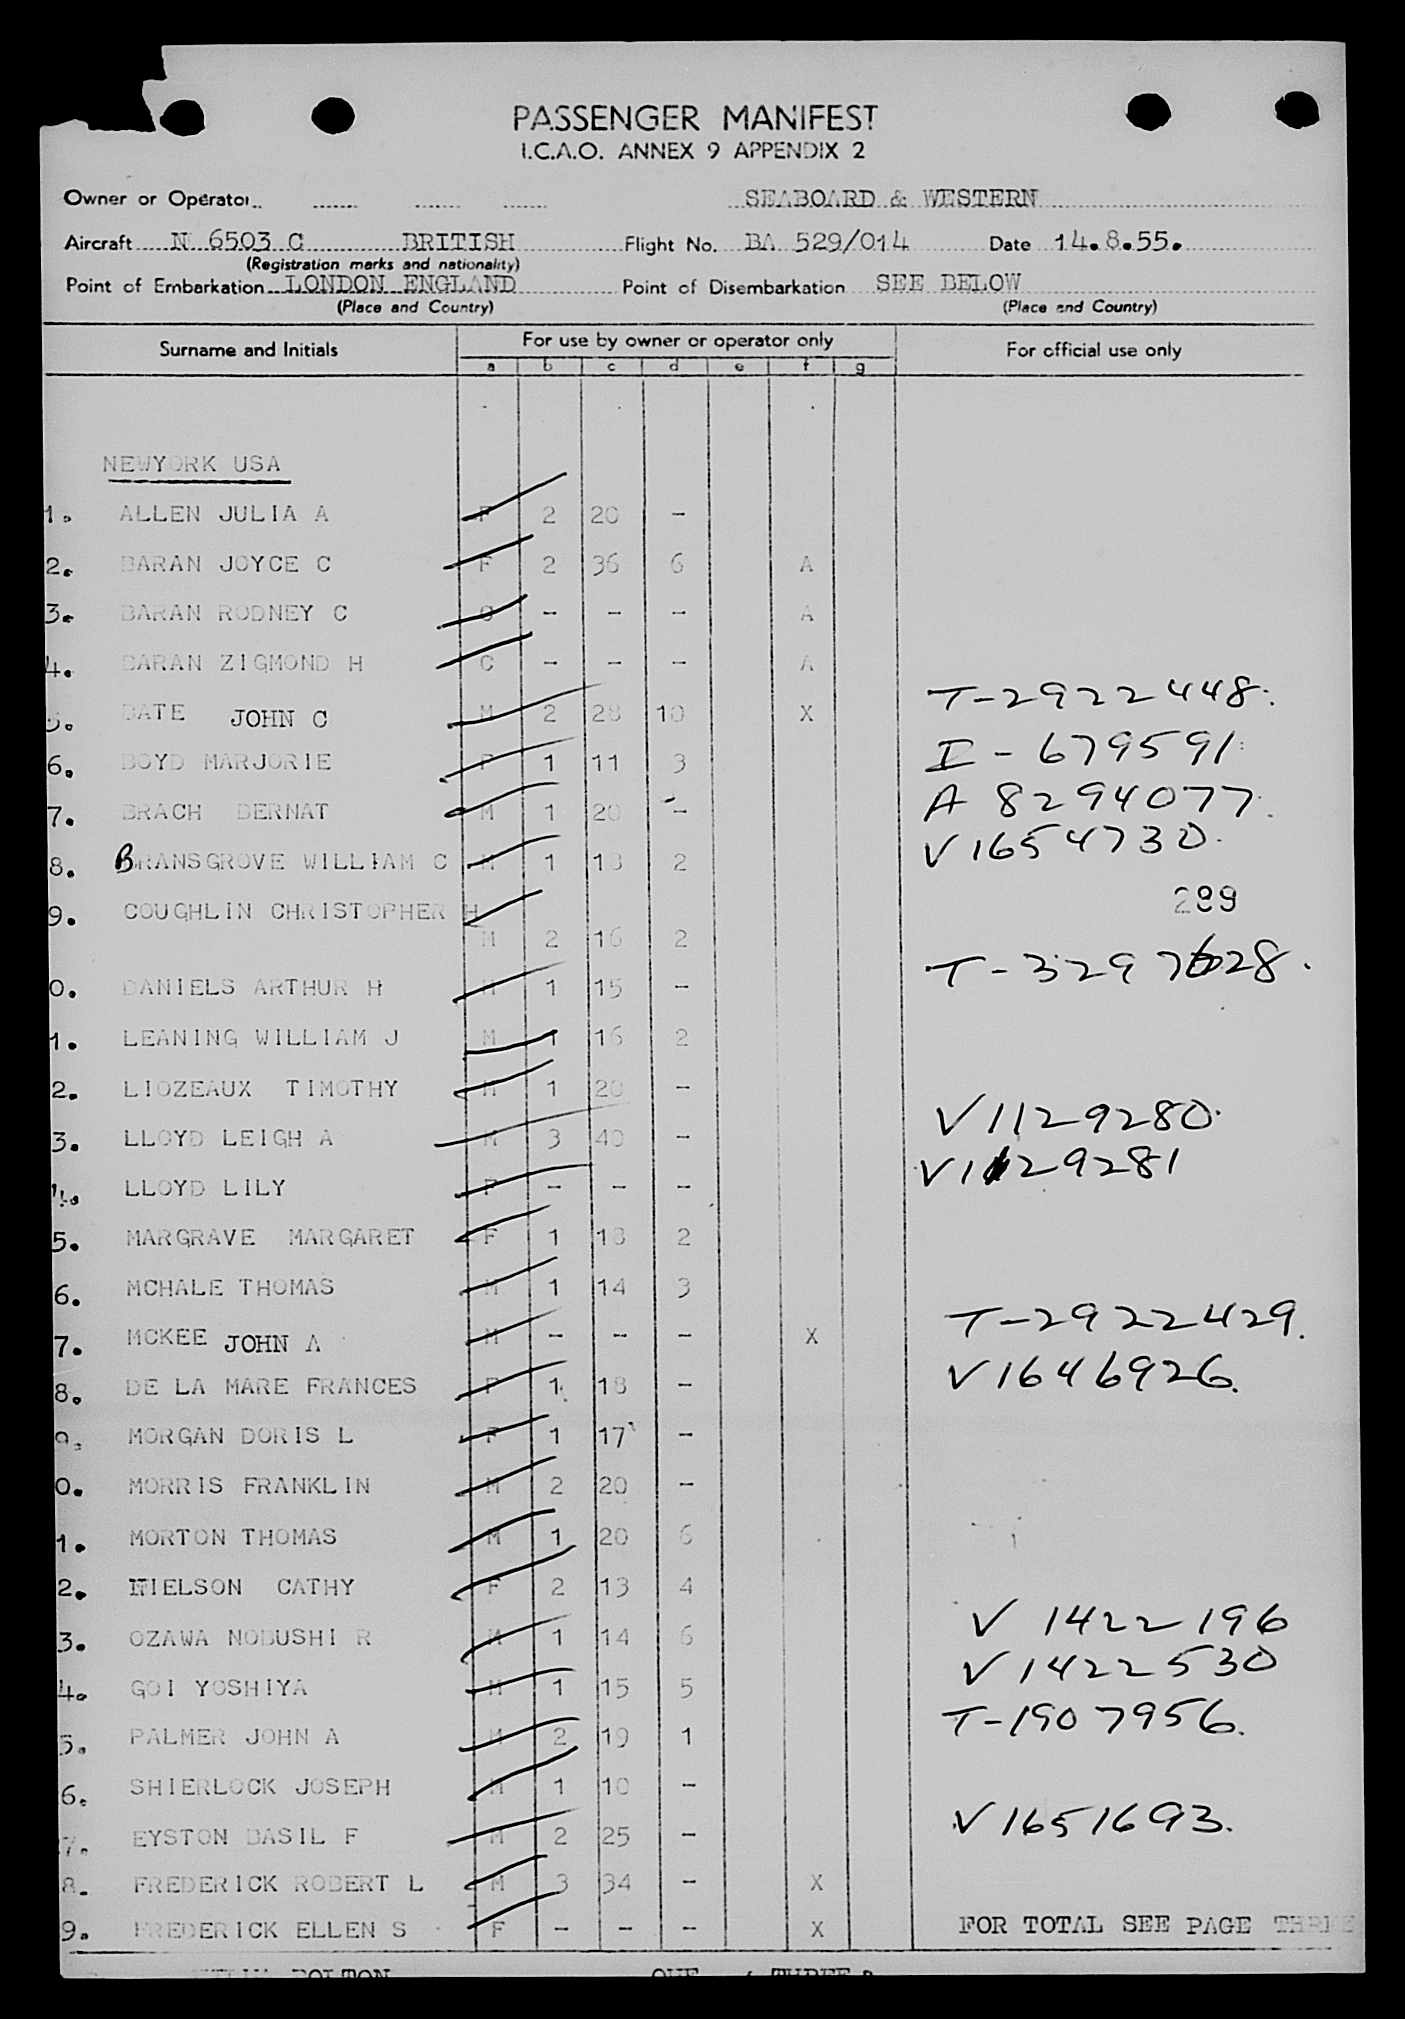 PASSENGER MANIFEST
I.C.A.O. ANNEX 9 APPENDIX 2
Owner or Operator SEABOARD & WESTERN
Aircraft N 6503 C BRITISH Flight No. BA 529/014 Date 14.8.55.
(Registration marks and nationality)
Point of Embarkation LONDON ENGLAND Point of Disembarkation SEE BELOW
(Place and Country) (Place and Country)
Surname and Initials For use by owner or operator only For official use only
a b c d e f g
NEWYORK USA
1. ALLEN JULIA A F 2 20 -
2. BARAN JOYCE C F 2 36 6 A
3. BARAN RODNEY C C - - - A
4. BARAN ZIGMOND H C - - - A
5. BATE JOHN C M 2 28 10 X T-2922448.
6. BOYD MARJORIE F 1 11 3 I-679591
7. BRACH BERNAT M 1 20 - A 8294077.
8. BRANSGROVE WILLIAM C M 1 18 2 V1654730.
9. COUGHLIN CHRISTOPHER H 299
M 2 16 2
0. DANIELS ARTHUR H M 1 15 - T-3297628.
1. LEANING WILLIAM J M 1 16 2
2. LIOZEAUX TIMOTHY M 1 20 -
3. LLOYD LEIGH A M 3 40 - V1129280.
4. LLOYD LILY F - - - V1129281
5. MARGRAVE MARGARET F 1 18 2
6. MCHALE THOMAS M 1 14 3
7. MCKEE JOHN A M - - - X T-2922429.
8. DE LA MARE FRANCES F 1 18 - V1646926.
9. MORGAN DORIS L F 1 17 -
0. MORRIS FRANKLIN M 2 20 -
1. MORTON THOMAS M 1 20 6
2. NIELSON CATHY F 2 13 4
3. OZAWA NOBUSHI R M 1 14 6 V 1422196
4. GOI YOSHIYA M 1 15 5 V1422530
5. PALMER JOHN A M 2 19 1 T-1907956.
6. SHIERLOCK JOSEPH M 1 10 -
7. EYSTON BASIL F M 2 25 - V1651693.
8. FREDERICK ROBERT L M 3 34 - X
9. FREDERICK ELLEN S F - - - X FOR TOTAL SEE PAGE THREE
BOLTON ONE THREE